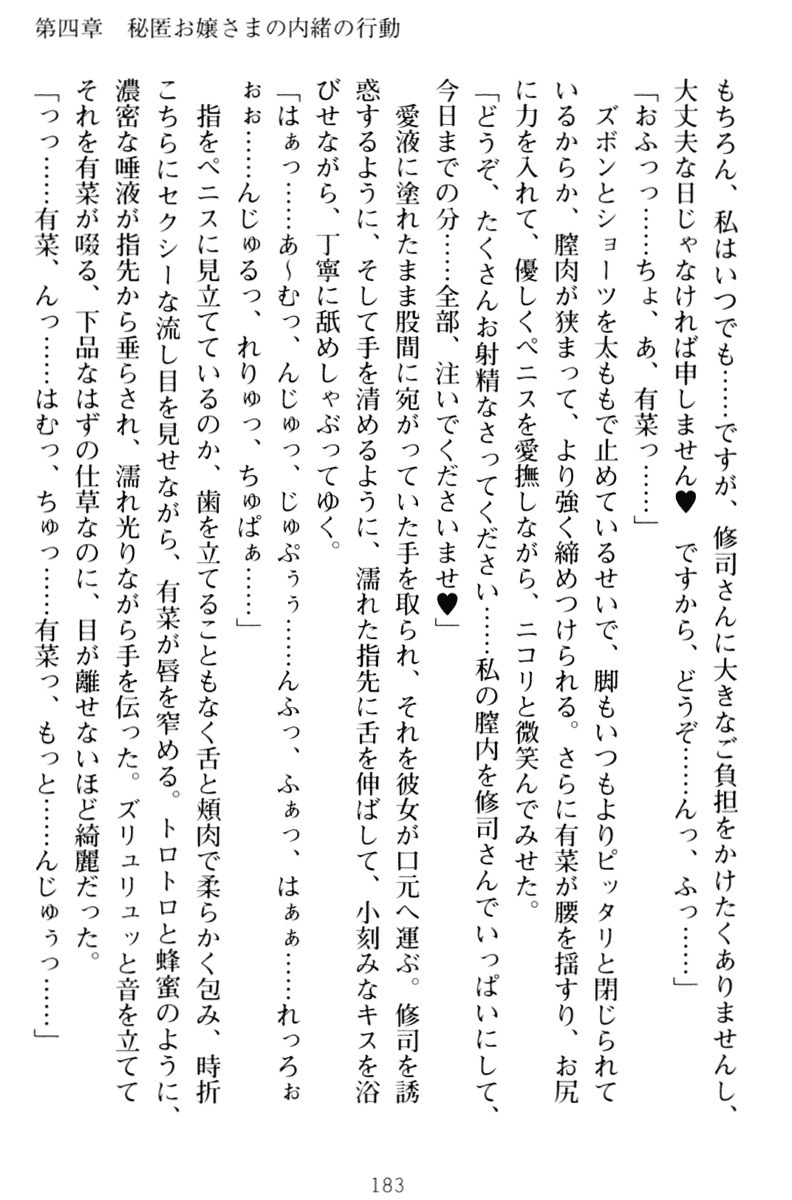 第四章　秘匿お嬢さまの内緒の行動
もちろん、私はいつでも……ですが、修司さんに大きなご負担をかけたくありませんし、
大丈夫な日じゃなければ申しません♥　ですから、どうぞ……んっ、ふっ……」
「おふっっ……ちょ、あ、有菜っ……」
ズボンとショーツを太ももで止めているせいで、脚もいつもよりピッタリと閉じられて
いるからか、膣肉が狭まって、より強く締めつけられる。さらに有菜が腰を揺すり、お尻
に力を入れて、優しくペニスを愛撫しながら、ニコリと微笑んでみせた。
「どうぞ、たくさんお射精なさってください……私の膣内を修司さんでいっぱいにして、
今日までの分……全部、注いでくださいませ♥」
愛液に塗れたまま股間に宛がっていた手を取られ、それを彼女が口元へ運ぶ。修司を誘
惑するように、そして手を清めるように、濡れた指先に舌を伸ばして、小刻みなキスを浴
びせながら、丁寧に舐めしゃぶってゆく。
「はぁっ……あ～むっ、んじゅっ、じゅぷぅぅ……んふっ、ふぁっ、はぁぁ……れっろぉ
ぉぉ……んじゅるっ、れりゅっ、ちゅぱぁ……」
指をペニスに見立てているのか、歯を立てることもなく舌と頬肉で柔らかく包み、時折
こちらにセクシーな流し目を見せながら、有菜が唇を窄める。トロトロと蜂蜜のように、
濃密な唾液が指先から垂らされ、濡れ光りながら手を伝った。ズリュリュッと音を立てて
それを有菜が啜る、下品なはずの仕草なのに、目が離せないほど綺麗だった。
「っっ……有菜、んっ……はむっ、ちゅっ……有菜っ、もっと……んじゅぅっ……」
183